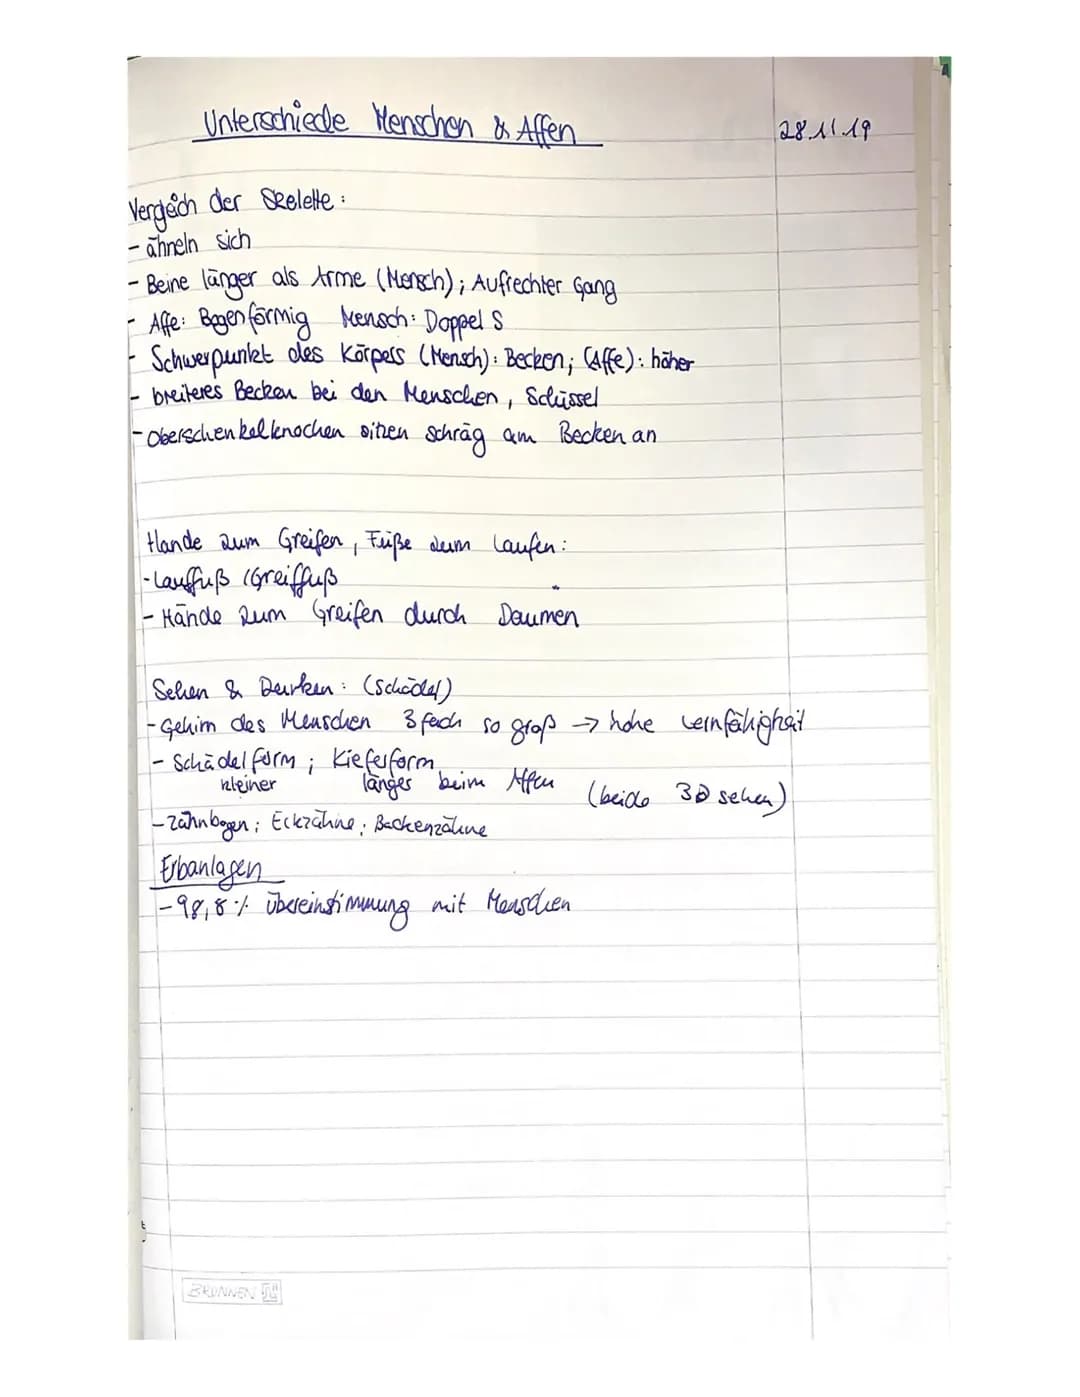 Unterschiede Menschen & Affen
28.11.19
Vergleich der Skelette:
- ähneln sich
- Beine länger als Arme (Mensch); Aufrechter Gang
- Affe: Bogenförmig Mensch: Doppel S
- Schwerpunkt des Körpers (Mensch): Becken; (Affe): höher
- breiteres Becken bei den Menschen, Schüssel
- Oberschenkelknochen sitzen schräg am Becken an
Hände zum Greifen, Füße zum Laufen:
- Lauffuß / Greiffuß
- Hände zum Greifen durch Daumen
Sehen & Denken: (Schädel)
- Gehirn des Menschen 3 fach so groß → hohe Lernfähigkeit
- Schädelform; Kieferform
kleiner länger beim Affen (beide 3D sehen)
- Zahnbogen; Eckzähne; Backenzähne
Erbanlagen
- 98,8% Übereinstimmung mit Menschen
BRUNNEN